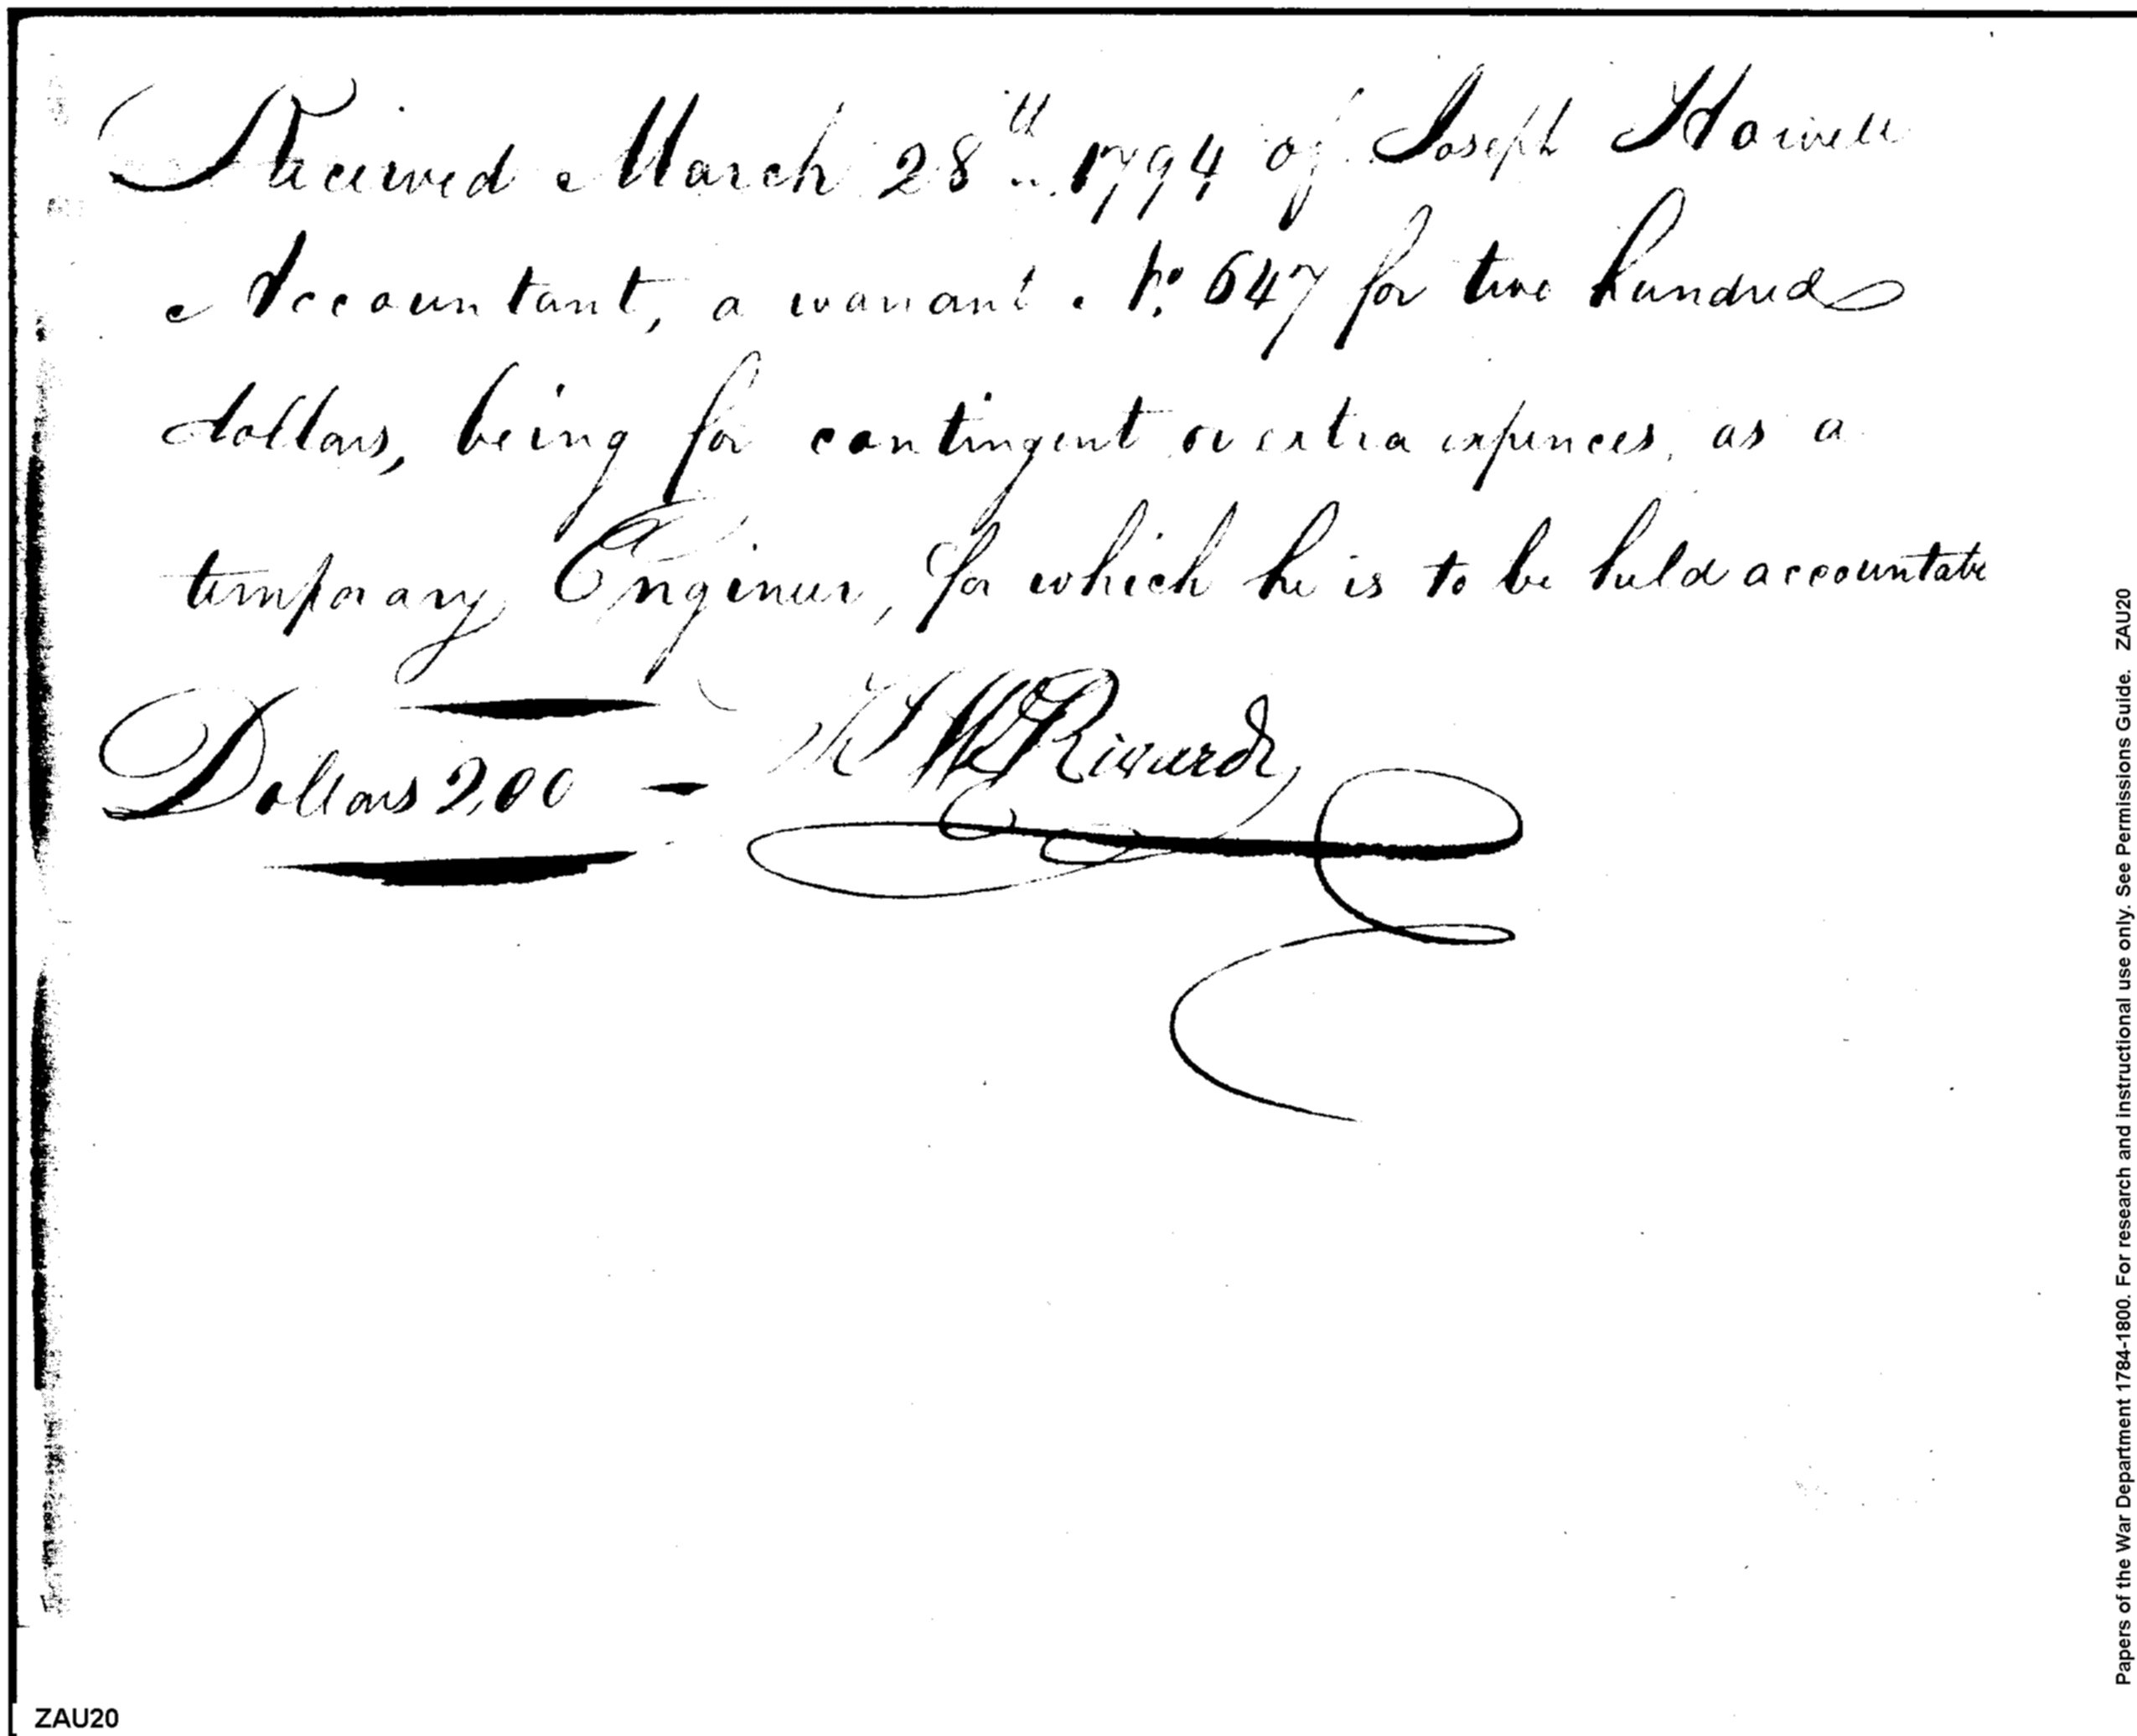 Received March 28th 1794 of Joseph Howell
Accountant, a warrant No 647 for two hundred
dollars, being for contingent or extra expences, as a
temporary Engineer, for which he is to be held accountable
Dollars 200 —
Papers of the War Department 1784-1800. For research and instructional use only. See Permissions Guide. ZAU20
ZAU20